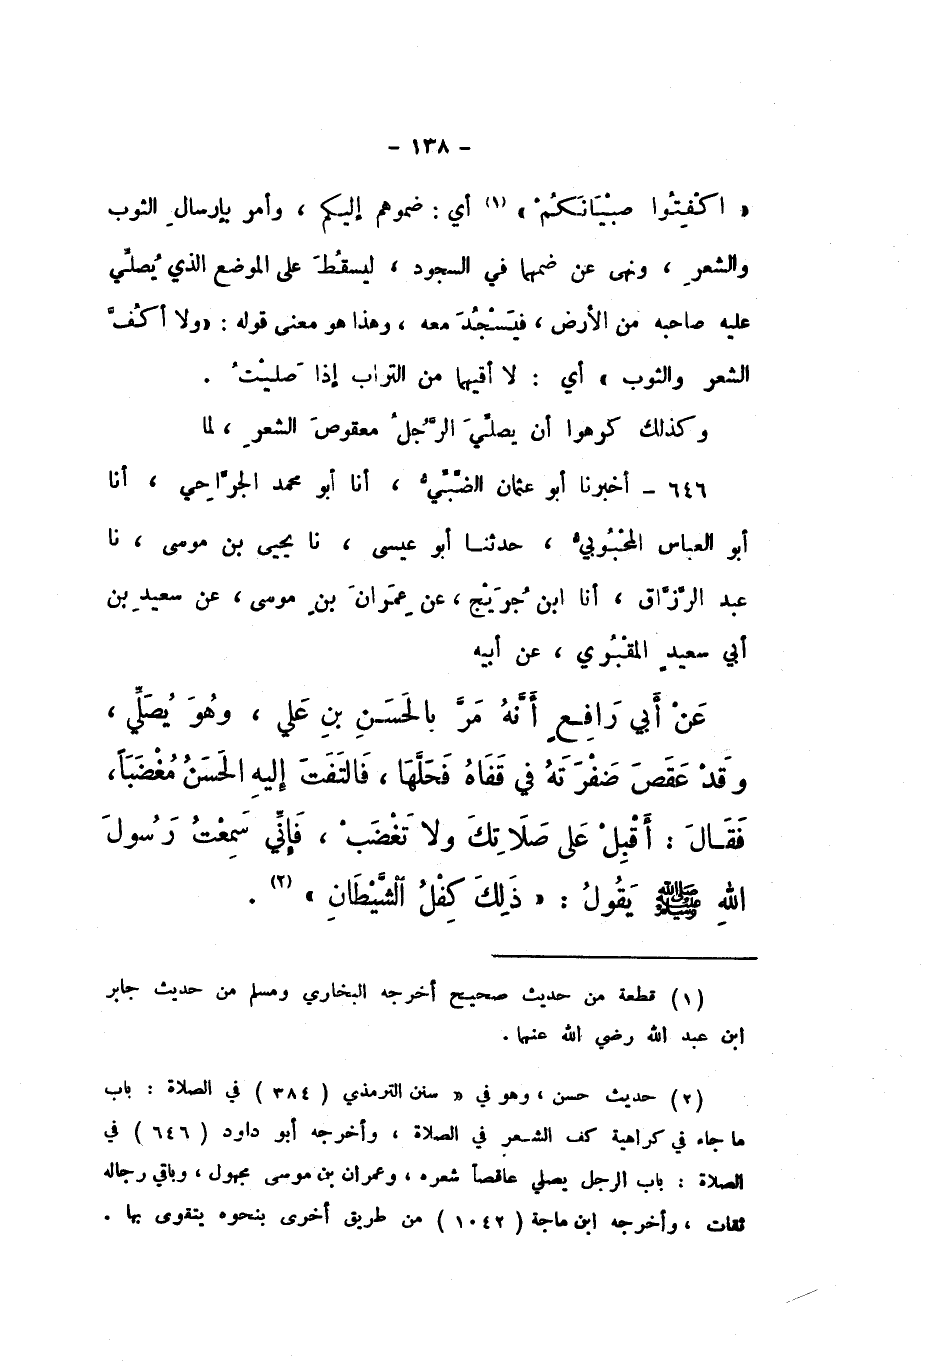 - ١٣٨ -
« اكْفِتُوا صِبْيَانَكُمْ » (١) أي : ضموهم إليكم ، وأمر بإرسال الثوب
والشعرِ ، ونهى عن ضمها في السجود ، ليسقُطَ على الموضع الذي يُصلِّي
عليه صاحبه من الأرض ، فيَسْجُدَ معه ، وهذا هو معنى قوله : «ولا أكُفَّ
الشعر والثوب » أي : لا أقيها من التراب إذا صليْتُ .
وكذلك كرهوا أن يصلِّيَ الرَّجلُ معقوصَ الشعرِ ، لما
٦٤٦ - أخبرنا أبو عثمان الضَّبِّيُّ ، أنا أبو محمد الجرَّاحي ، أنا
أبو العباس المحْبُوبيُّ ، حدثنا أبو عيسى ، نا يحيى بن موسى ، نا
عبد الرَّزَّاق ، أنا ابن جُرَيْج ، عن عِمْرانَ بنِ موسى ، عن سعيدِ بن
أبي سعيدٍ المقْبُري ، عن أبيه
عَنْ أَبي رَافِعٍ أَنَّهُ مَرَّ بالحَسَنِ بنِ عَلي ، وهُوَ يُصَلِّي ،
وقَدْ عَقَصَ ضَفْرَتَهُ في قَفَاهُ فَحَلَّهَا ، فَالتَفَتَ إليهِ الحَسَنُ مُغْضَبَاً ،
فَقَالَ : أَقْبِلْ عَلى صَلَاتِكَ ولا تَغْضَبْ ، فَإنِّي سَمِعْتُ رَسُولَ
اللهِ ﷺ يَقُولُ : « ذَلِكَ كِفْلُ الشَّيْطَانِ » (٢) .
(١) قطعة من حديث صحيح أخرجه البخاري ومسلم من حديث جابر
ابن عبد الله رضي الله عنها .
(٢) حديث حسن ، وهو في « سنن الترمذي ( ٣٨٤ ) في الصلاة : باب
ما جاء في كراهية كف الشعر في الصلاة ، وأخرجه أبو داود ( ٦٤٦ ) في
الصلاة : باب الرجل يصلي عاقصاً شعره ، وعمران بن موسى مجهول ، وباقي رجاله
ثقات ، وأخرجه ابن ماجة ( ١٠٤٢ ) من طريق أخرى بنحوه يتقوى بها .